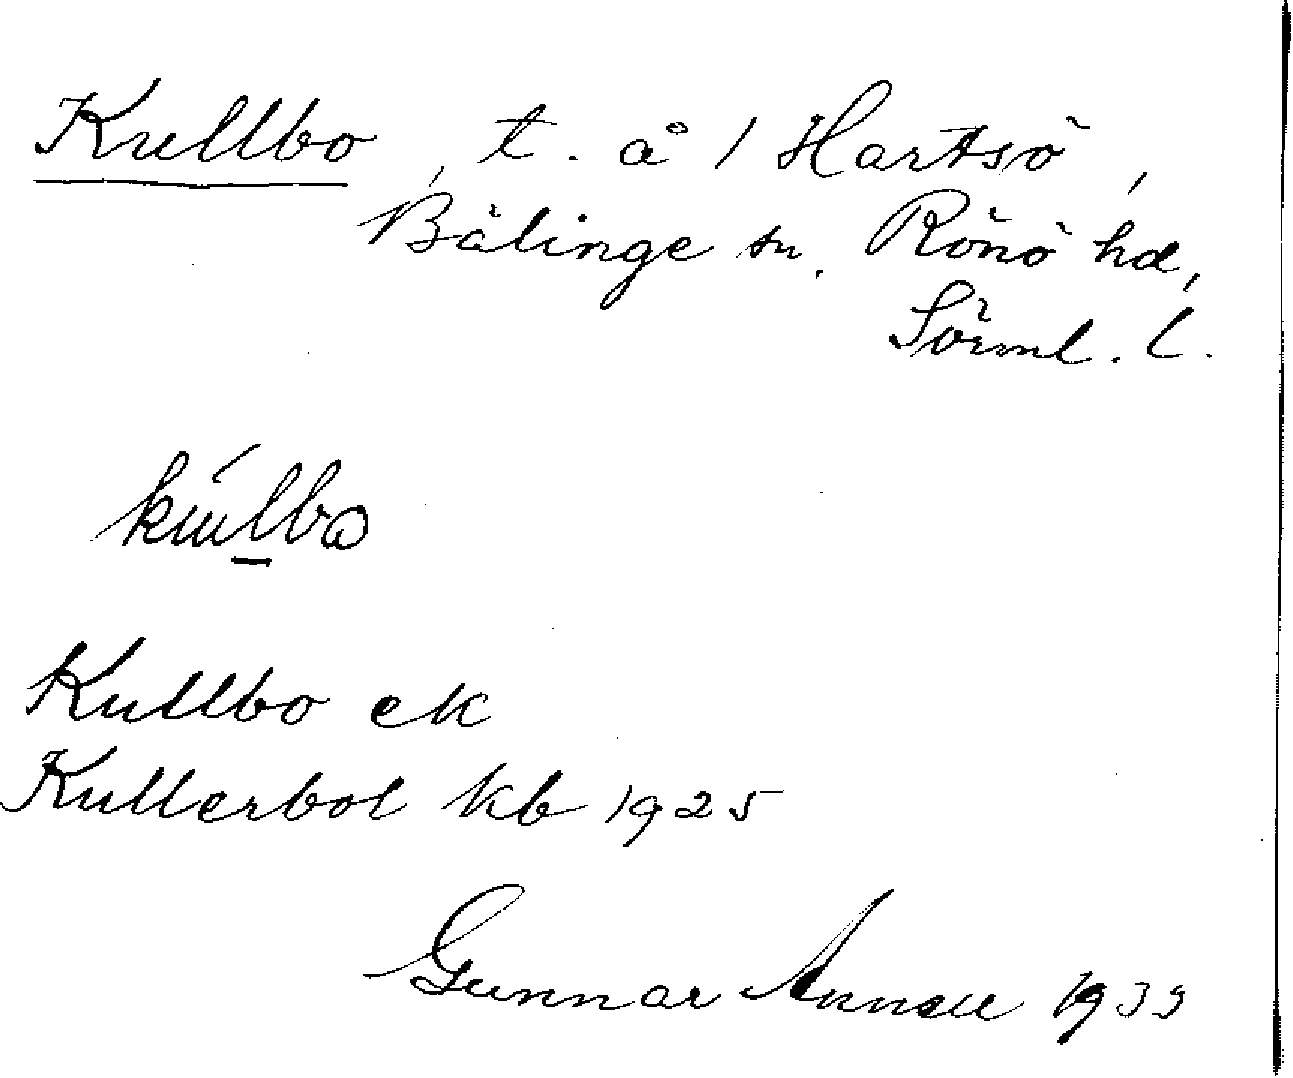 Kullbo, t. å 1 Hartsö,
Bälinge sn. Rönö hd,
Sörml. l.
kúllbo
Kullbo ek
Kullerbol kb 1925
Gunnar 1933